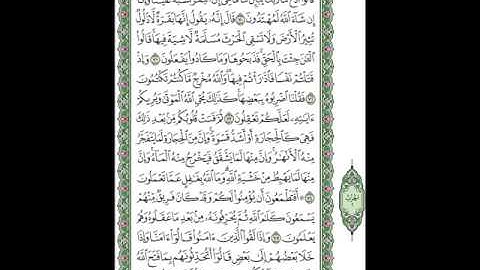 إِن شَآءَ ٱللَّهُ لَمُهۡتَدُونَ ٧٠ قَالَ إِنَّهُۥ يَقُولُ إِنَّهَا بَقَرَةٞ لَّا ذَلُولٞ
تُثِيرُ ٱلۡأَرۡضَ وَلَا تَسۡقِي ٱلۡحَرۡثَ مُسَلَّمَةٞ لَّا شِيَةَ فِيهَاۚ قَالُواْ
ٱلۡـَٰٔنَ جِئۡتَ بِٱلۡحَقِّۚ فَذَبَحُوهَا وَمَا كَادُواْ يَفۡعَلُونَ ٧١ وَإِذۡ
قَتَلۡتُمۡ نَفۡسٗا فَٱدَّٰرَٰٔتُمۡ فِيهَاۖ وَٱللَّهُ مُخۡرِجٞ مَّا كُنتُمۡ تَكۡتُمُونَ
٧٢ فَقُلۡنَا ٱضۡرِبُوهُ بِبَعۡضِهَاۚ كَذَٰلِكَ يُحۡيِ ٱللَّهُ ٱلۡمَوۡتَىٰ وَيُرِيكُمۡ
ءَايَٰتِهِۦ لَعَلَّكُمۡ تَعۡقِلُونَ ٧٣ ثُمَّ قَسَتۡ قُلُوبُكُم مِّنۢ بَعۡدِ ذَٰلِكَ
فَهِيَ كَٱلۡحِجَارَةِ أَوۡ أَشَدُّ قَسۡوَةٗۚ وَإِنَّ مِنَ ٱلۡحِجَارَةِ لَمَا يَتَفَجَّرُ
مِنۡهُ ٱلۡأَنۡهَٰرُۚ وَإِنَّ مِنۡهَا لَمَا يَشَّقَّقُ فَيَخۡرُجُ مِنۡهُ ٱلۡمَآءُۚ وَإِنَّ
مِنۡهَا لَمَا يَهۡبِطُ مِنۡ خَشۡيَةِ ٱللَّهِۗ وَمَا ٱللَّهُ بِغَٰفِلٍ عَمَّا تَعۡمَلُونَ
٧٤ أَفَتَطۡمَعُونَ أَن يُؤۡمِنُواْ لَكُمۡ وَقَدۡ كَانَ فَرِيقٞ مِّنۡهُمۡ
يَسۡمَعُونَ كَلَٰمَ ٱللَّهِ ثُمَّ يُحَرِّفُونَهُۥ مِنۢ بَعۡدِ مَا عَقَلُوهُ وَهُمۡ
يَعۡلَمُونَ ٧٥ وَإِذَا لَقُواْ ٱلَّذِينَ ءَامَنُواْ قَالُوٓاْ ءَامَنَّا وَإِذَا
خَلَا بَعۡضُهُمۡ إِلَىٰ بَعۡضٖ قَالُوٓاْ أَتُحَدِّثُونَهُم بِمَا فَتَحَ ٱللَّهُ